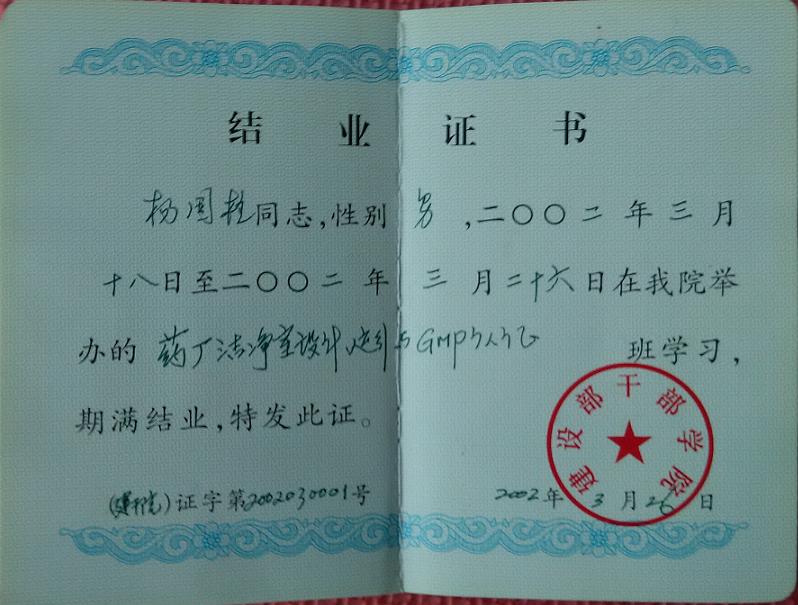 结业证书
杨国栋同志，性别男，二〇〇二年三月
十八日至二〇〇二年三月二十六日在我院举
办的药厂洁净室设计、运行与GMP认证班学习，
期满结业，特发此证。
建设部干部学院
证字第2002030001号
2002年3月26日